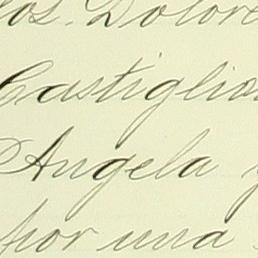 los. Dolore
Castiglio
Angela y
por una